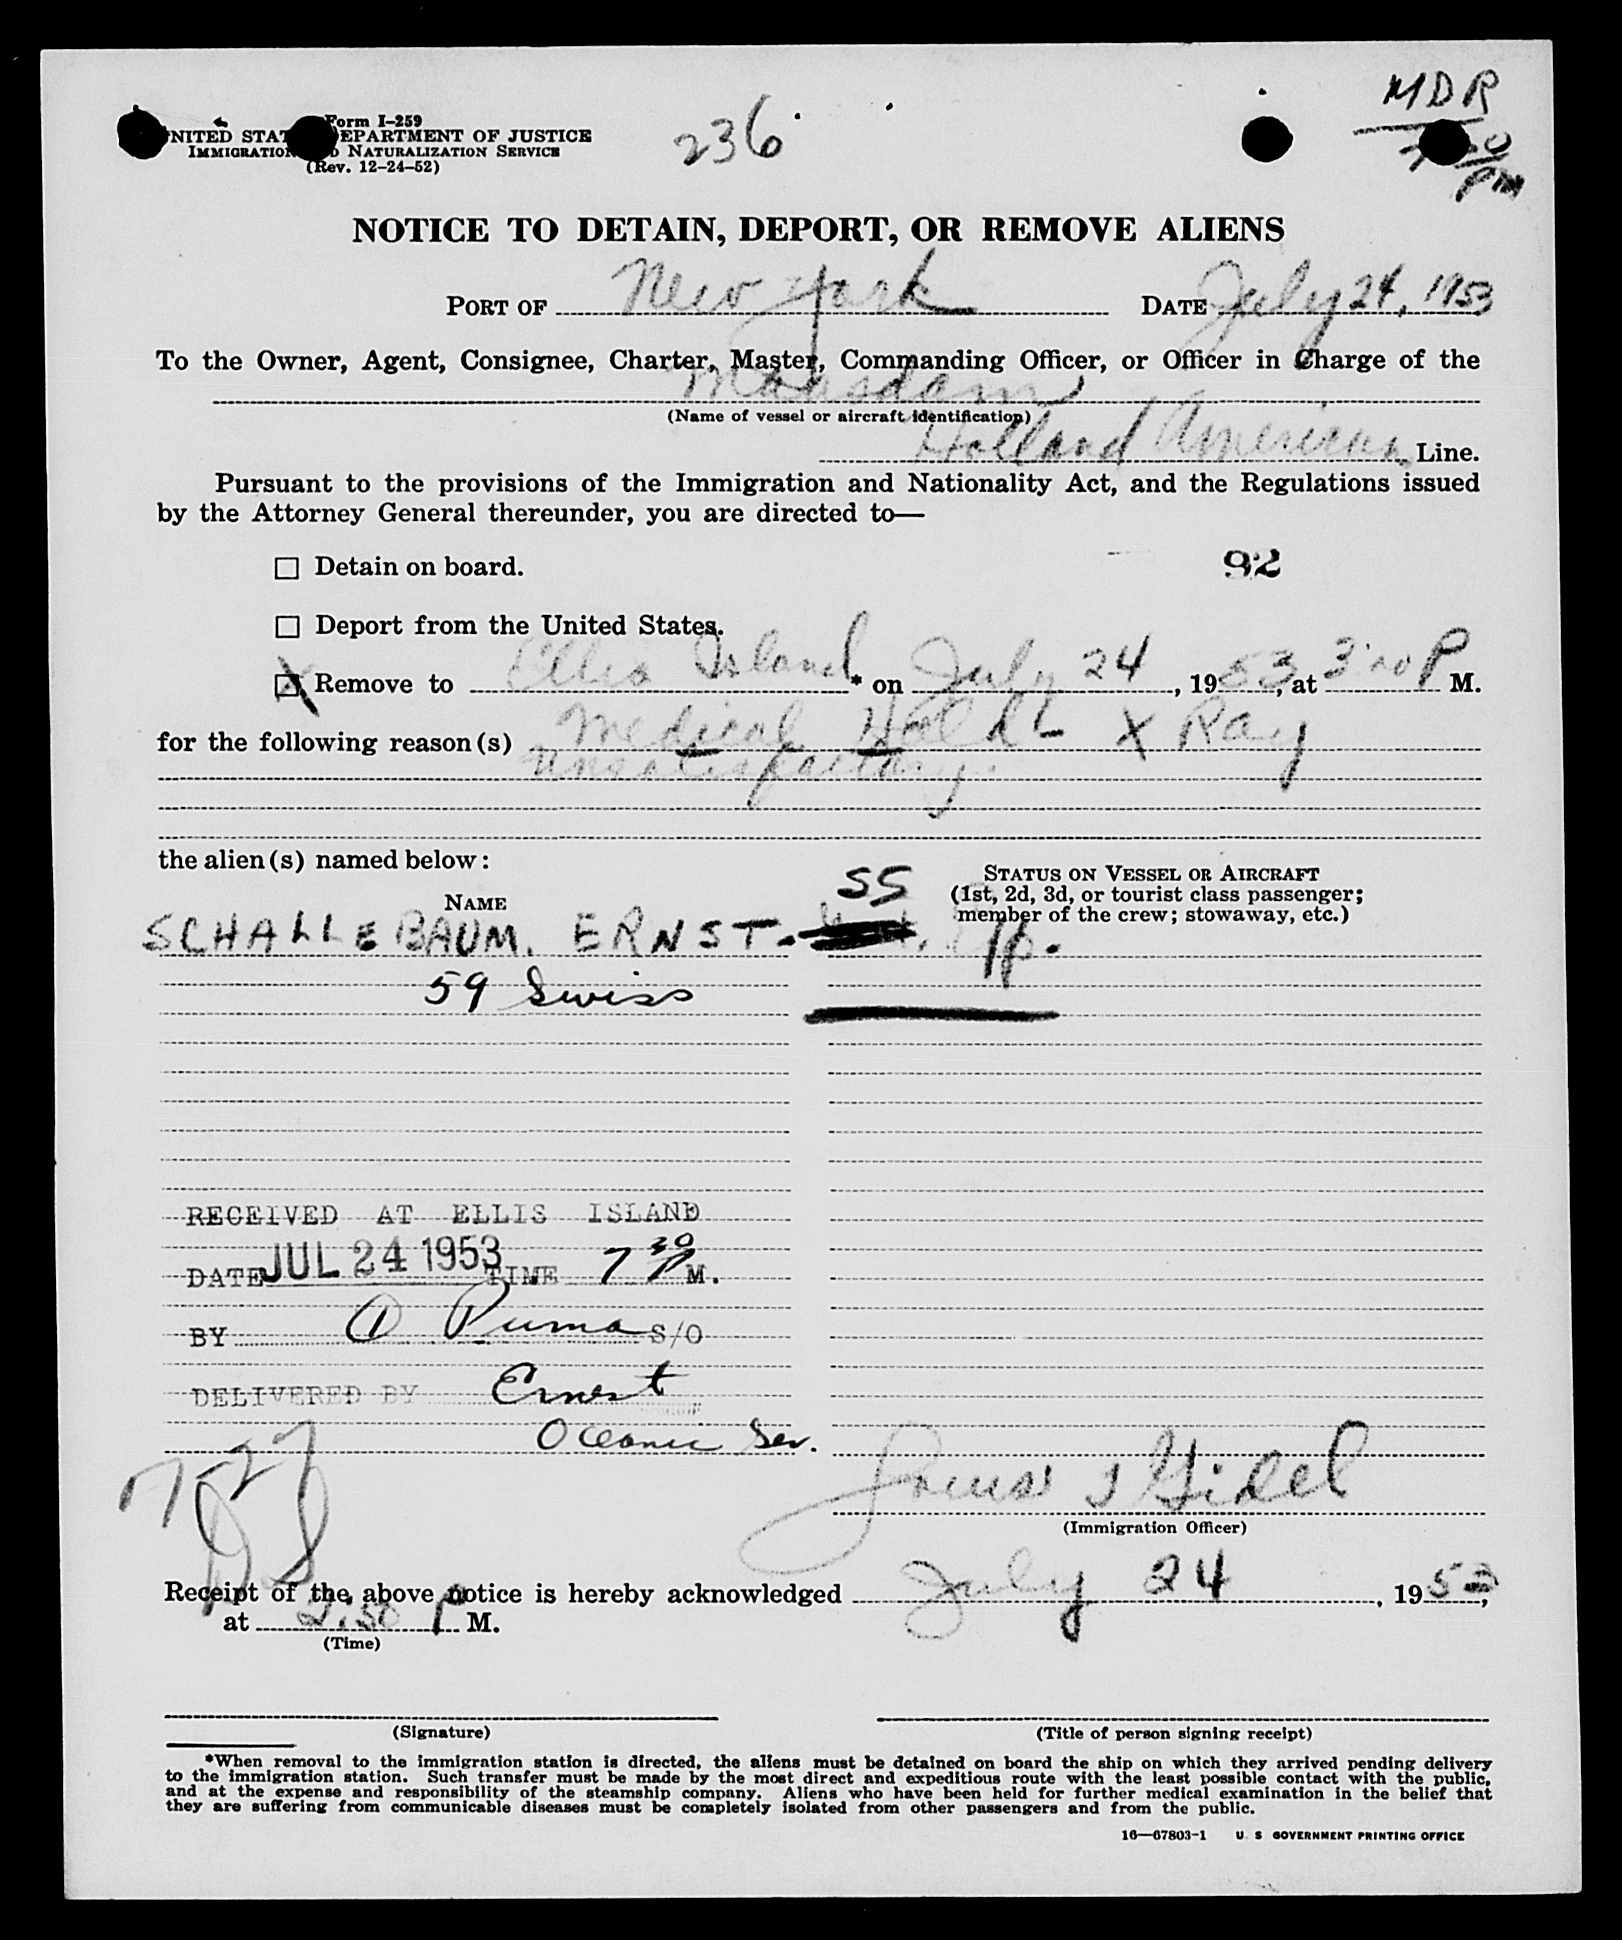 Form I-259
UNITED STATES DEPARTMENT OF JUSTICE
IMMIGRATION AND NATURALIZATION SERVICE
(Rev. 12-24-52)
236
MDR
PM
NOTICE TO DETAIN, DEPORT, OR REMOVE ALIENS
PORT OF New York DATE July 24, 1953
To the Owner, Agent, Consignee, Charter, Master, Commanding Officer, or Officer in Charge of the
Maasdam
(Name of vessel or aircraft identification)
Holland American Line.
Pursuant to the provisions of the Immigration and Nationality Act, and the Regulations issued
by the Attorney General thereunder, you are directed to—
☐ Detain on board. 92
☐ Deport from the United States.
☒ Remove to Ellis Island * on July 24, 1953, at 3:00 P M.
for the following reason(s) Medical Hold X Ray
unsatisfactory.
the alien(s) named below:
NAME
STATUS ON VESSEL OR AIRCRAFT
(1st, 2d, 3d, or tourist class passenger;
member of the crew; stowaway, etc.)
55
SCHALLEBAUM, ERNST.
59 Swiss
RECEIVED AT ELLIS ISLAND
DATE JUL 24 1953 TIME 7 30 P M.
BY Puma S/O
DELIVERED BY Ernest
Oceanic Ser.
7-27
(Immigration Officer)
Receipt of the above notice is hereby acknowledged July 24, 1953,
at 2:50 P M.
(Time)
(Signature)
(Title of person signing receipt)
*When removal to the immigration station is directed, the aliens must be detained on board the ship on which they arrived pending delivery
to the immigration station. Such transfer must be made by the most direct and expeditious route with the least possible contact with the public,
and at the expense and responsibility of the steamship company. Aliens who have been held for further medical examination in the belief that
they are suffering from communicable diseases must be completely isolated from other passengers and from the public.
16—67803-1 U. S GOVERNMENT PRINTING OFFICE